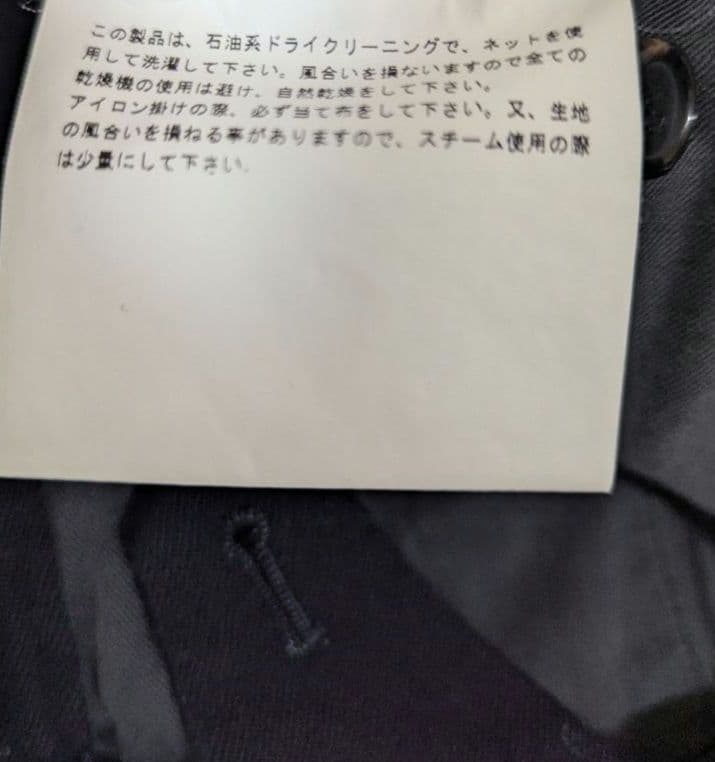 この製品は、石油系ドライクリーニングで、ネットを使
用して洗濯して下さい。風合いを損ないますので全ての
乾燥機の使用は避け、自然乾燥をして下さい。
アイロン掛けの際、必ず当て布をして下さい。又、生地
の風合いを損ねる事がありますので、スチーム使用の際
は少量にして下さい。